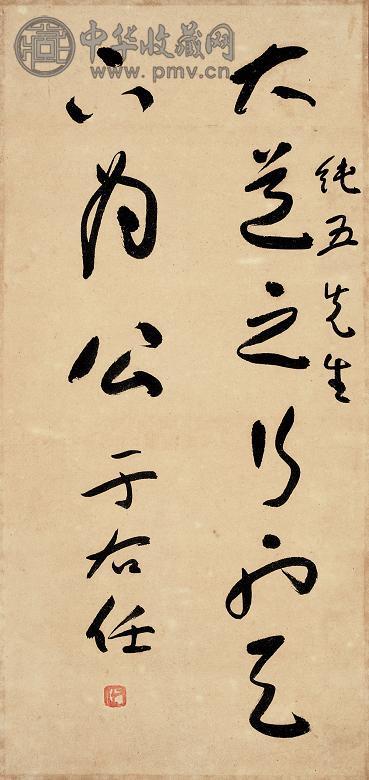 中华收藏网
www.pmv.cn
純五先生
大道之行也天
下為公
于右任